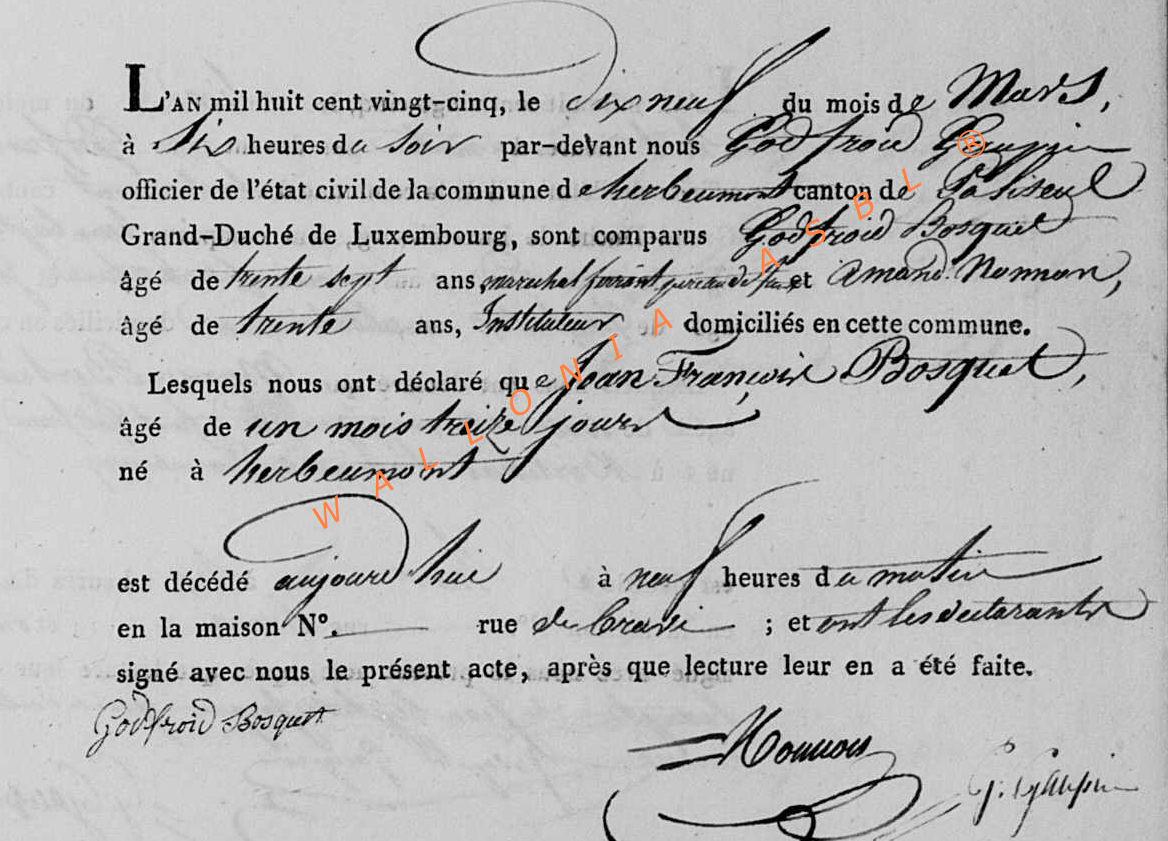 L'AN mil huit cent vingt-cinq, le dix neuf du mois de Mars,
à Six heures du Soir par-devant nous Godfroid
officier de l'état civil de la commune d e herbeumont canton de Paliseul
Grand-Duché de Luxembourg, sont comparus Godfroid Bosquet
âgé de trente sept ans, marechal ferrant et amand Nonnon,
âgé de trente ans, Instituteur domiciliés en cette commune.
Lesquels nous ont déclaré que Jean François Bosquet,
âgé de un mois treize jours
né à herbeumont
est décédé aujourd hui à neuf heures du matin
en la maison N°. rue de ; et ont les declarants
signé avec nous le présent acte, après que lecture leur en a été faite.
Godfroid Bosquet
Nonnon
WALLONIA ASBL ®